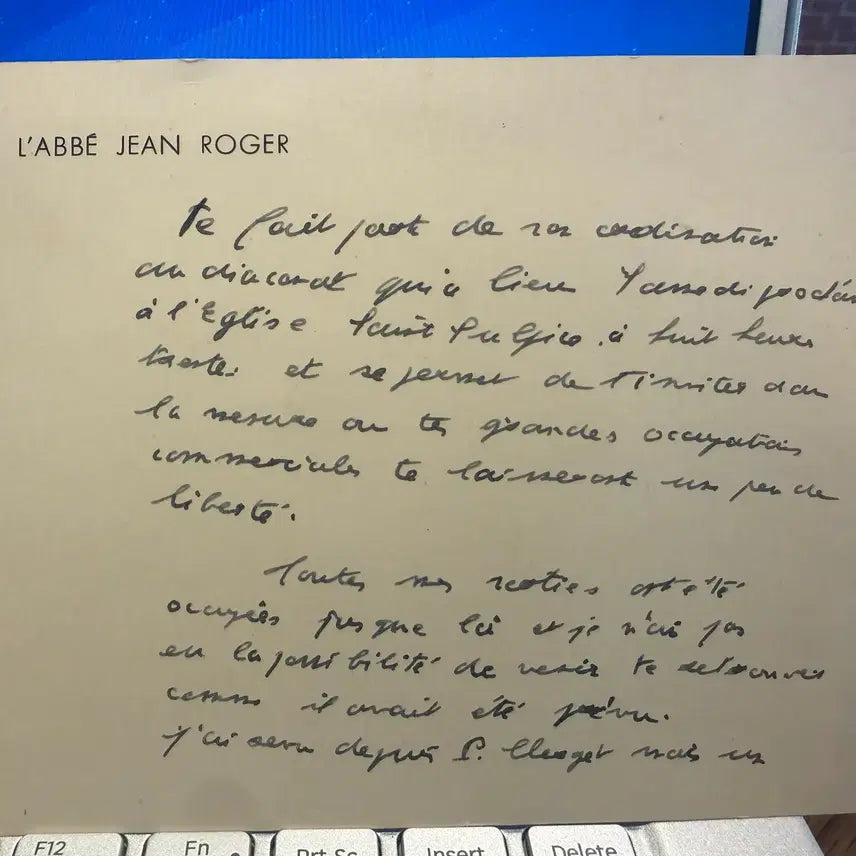 L'ABBÉ JEAN ROGER
te fait part de son ordination
au diaconat qui a lieu samedi prochain
à l'Eglise Saint Sulpice à huit heures
trente et se permet de t'inviter dans
la mesure où tes grandes occupations
commerciales te laisseront un peu de
liberté.
Toutes mes sorties ont été
occupées jusque là et je n'ai pas
eu la possibilité de venir te
comme il avait été prévu.
j'ai depuis P. mais un
F12
Fn
Prt Sc
Insert
Delete